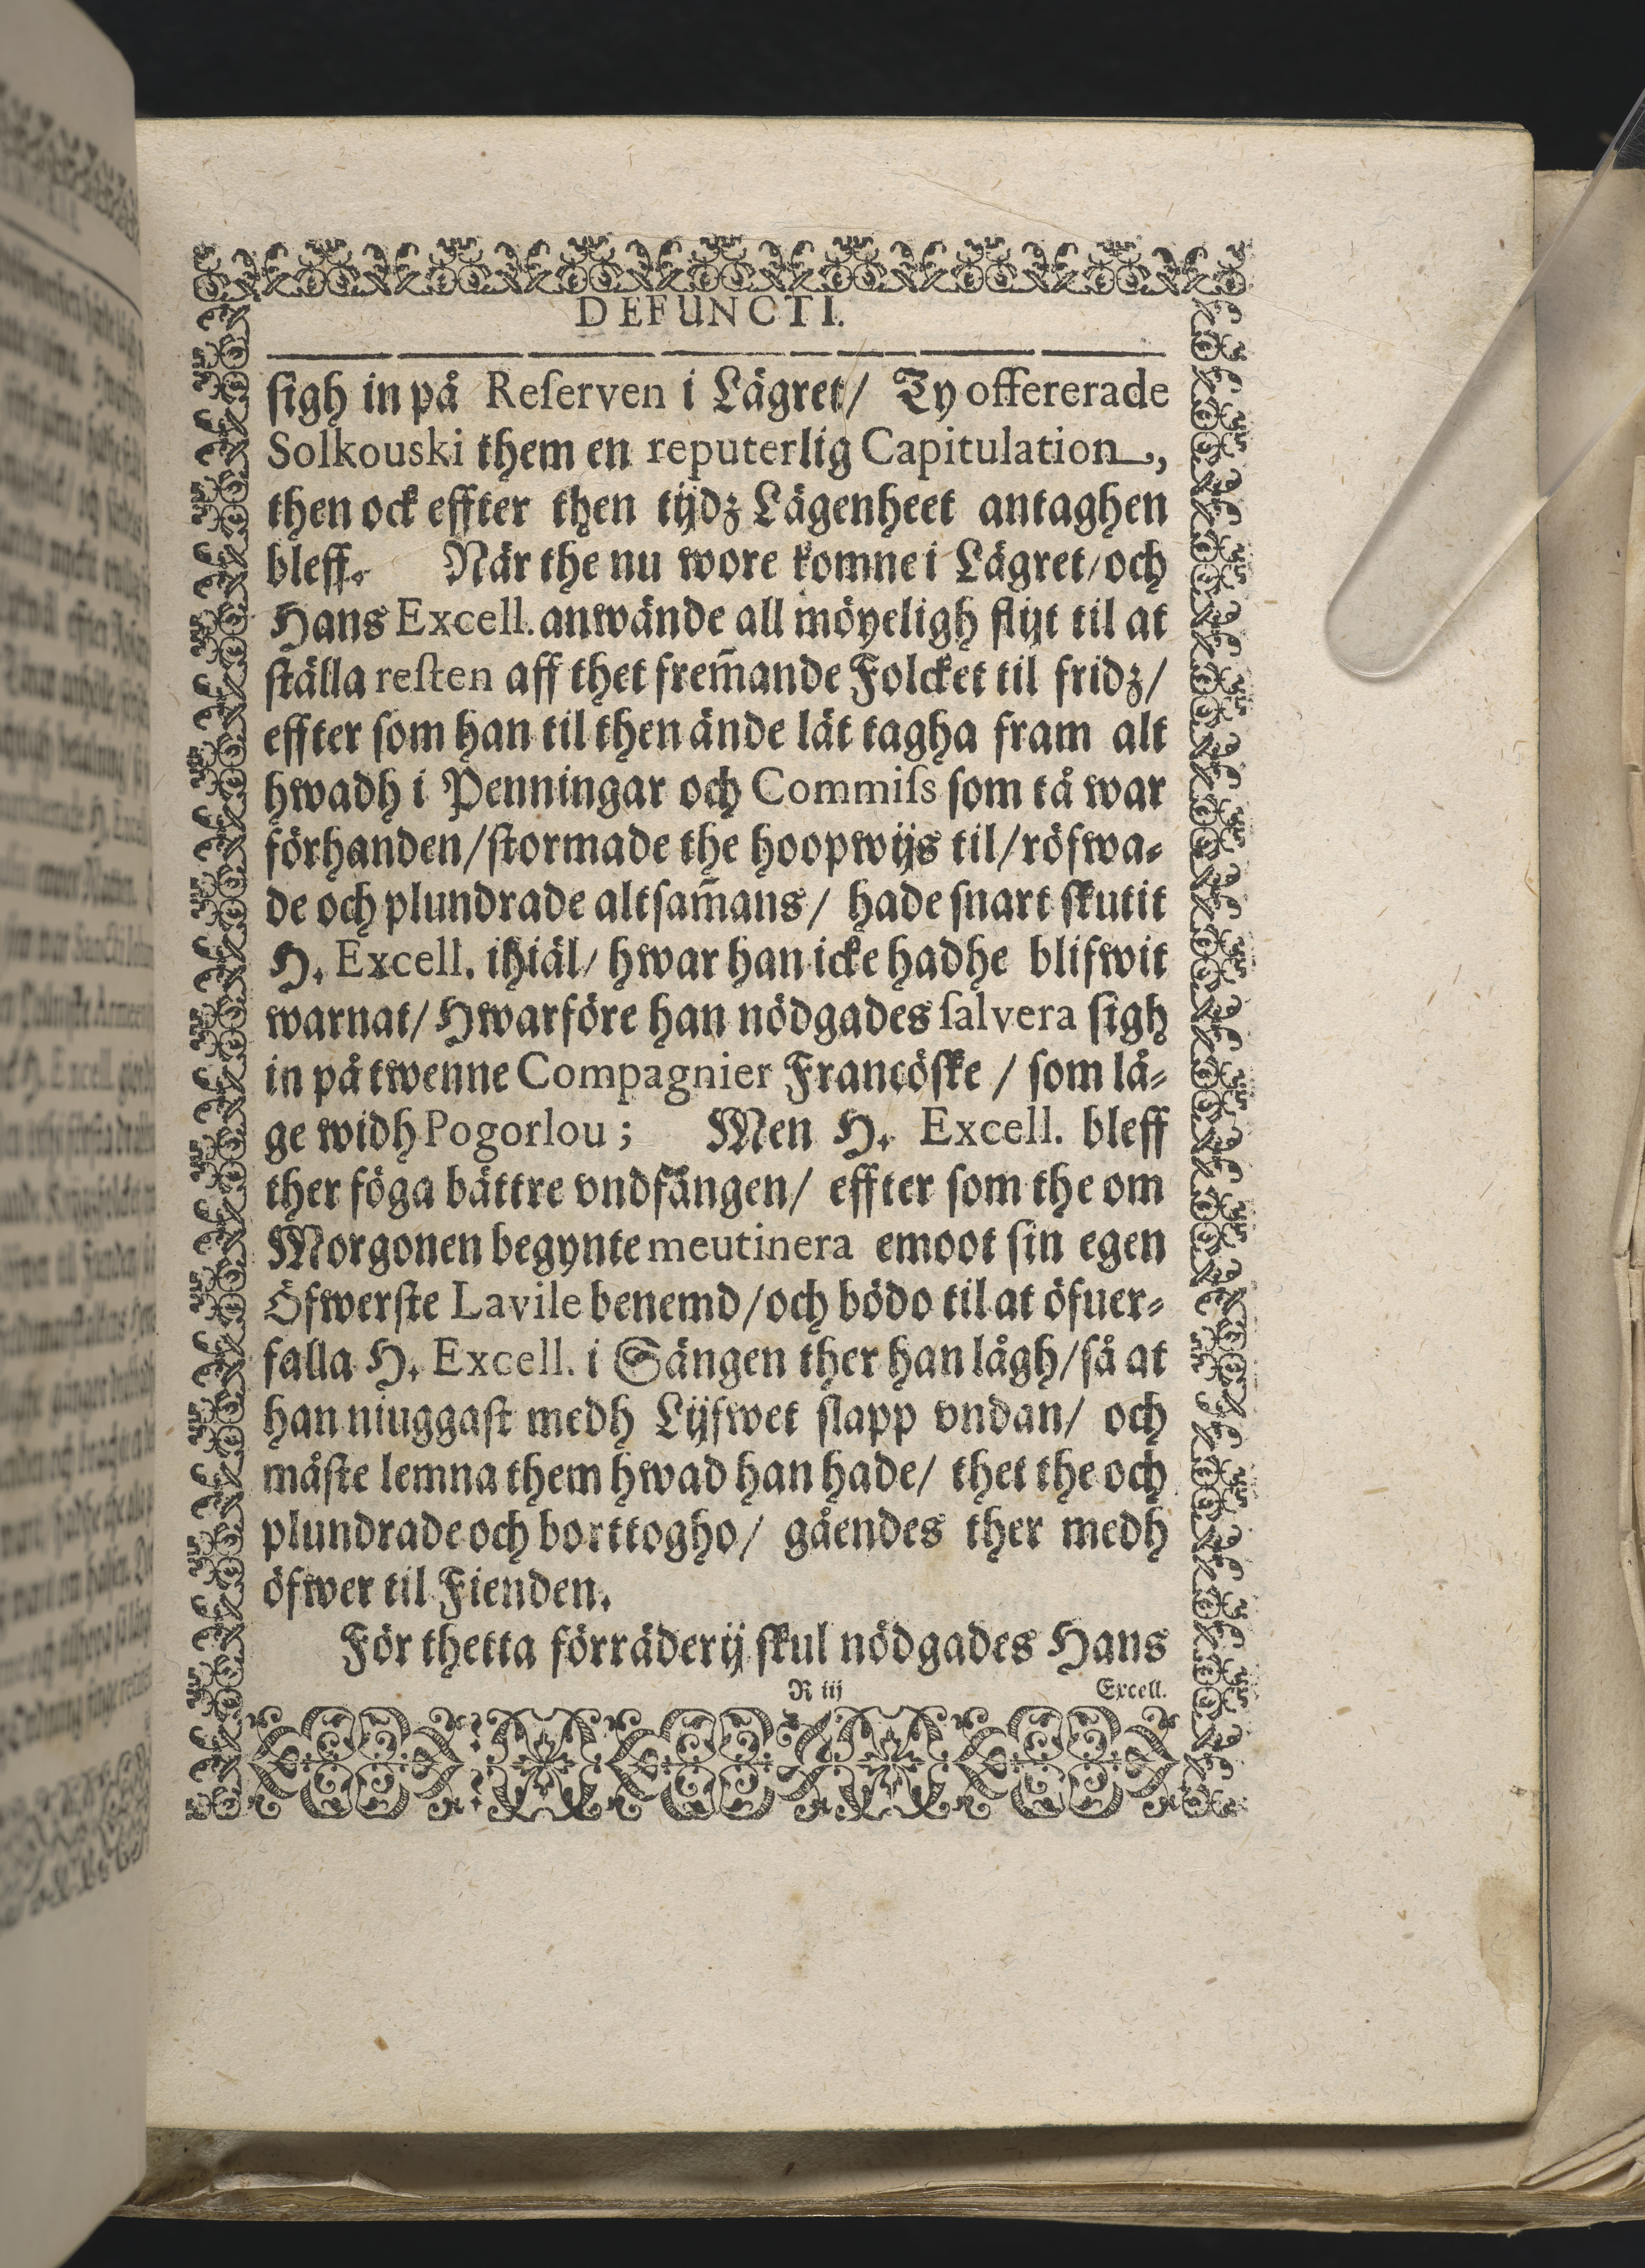 DEFUNCTI.
ſigh in på Reſerven i Lägret/ Ty offererade
Solkouski them en reputerlig Capitulation,
then ock effter then tijdz Lägenheet antaghen
bleff. När the nu wore komne i Lägret/och
Hans Excell. anwände all möyeligh flijt til at
ſtälla reſten aff thet frem̃ande Folcket til fridz/
effter ſom han til then ände lät tagha fram alt
hwadh i Penningar och Commiſs ſom tå war
förhanden/ſtormade the hoopwijs til/röfwa⸗
de och plundrade altſam̃ans/ hade ſnart ſkutit
H. Excell. ihiäl/ hwar han icke hadhe blifwit
warnat/ Hwarföre han nödgades ſalvera ſigh
in på twenne Compagnier Francöſke / ſom lå⸗
ge widh Pogorlou; Men H. Excell. bleff
ther föga bättre vndfången/ effter ſom the om
Morgonen begynte meutinera emoot ſin egen
Öfwerſte Lavile benemd/och bödo til at öfuer⸗
falla H. Excell. i Sängen ther han lågh/ſå at
han niuggaſt medh Lijfwet ſlapp vndan/ och
måſte lemna them hwad han hade/ thet the och
plundrade och borttogho/ gåendes ther medh
öfwer til Fienden.
För thetta förräderij ſkul nödgades Hans
R iij Excell.